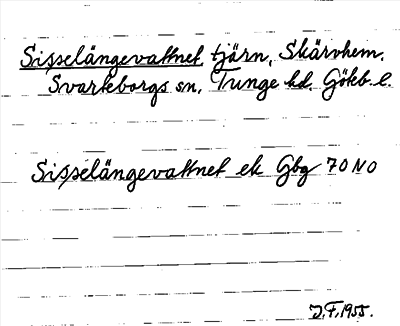 Sisselängevattnet, tjärn, Skärvhem.
Svarteborgs sn, Tunge hd. Göteb. l.
Sisselängevattnet ek Gbg 70 NO
J.F. 1955.